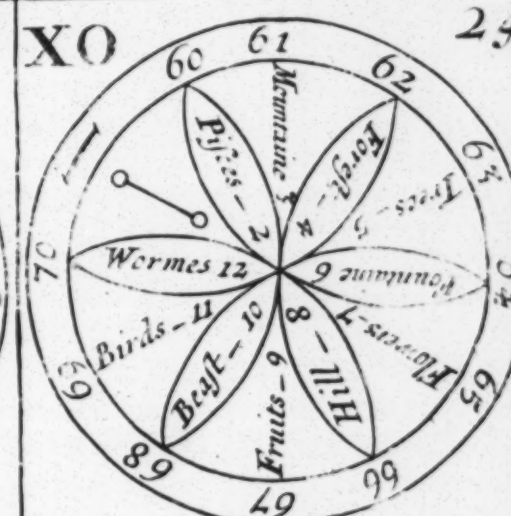 XO
60
61
62
63
64
65
66
67
68
69
70
Piſces - 2
Mountaine 3
Foreſt - 4
Trees - 5
Fountaine 6
Flowers - 7
Hill - 8
Fruits - 9
Beaſt - 10
Birds - 11
Wormes 12